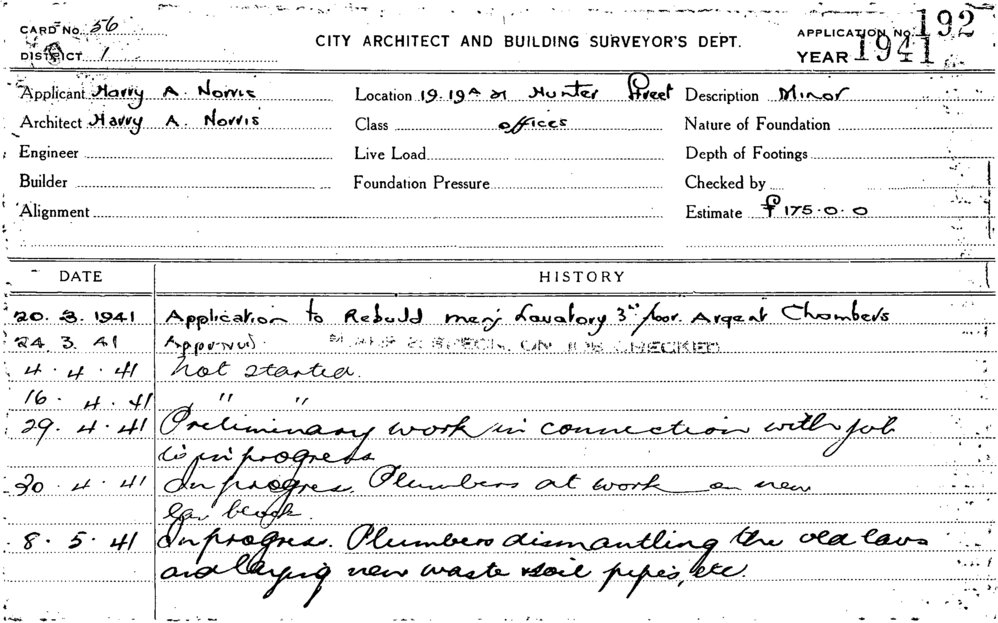 CARD No. 56
DISTRICT 1
CITY ARCHITECT AND BUILDING SURVEYOR'S DEPT.
APPLICATION No. 192
YEAR 1941
Applicant Harry A. Norris
Location 19.19A 21 Hunter Street
Description Minor
Architect Harry A. Norris
Class offices
Nature of Foundation
Engineer
Live Load
Depth of Footings
Builder
Foundation Pressure
Checked by
Alignment
Estimate £175.0.0
DATE HISTORY
20. 3. 1941 Application to Rebuild mens Lavatory 3rd floor. Argent Chambers
24 3. 41 Approved. & SPECN. ON JOB CHECKED
4 . 4 . 41 Not started.
16 . 4 . 41 " "
29 . 4 . 41 Preliminary work in connection with job
is in progress
30 . 4 . 41 In progress. Plumbers at work on new
lav block.
8 . 5 . 41 In progress. Plumbers dismantling the old lavs
and laying new waste & soil pipes, etc.